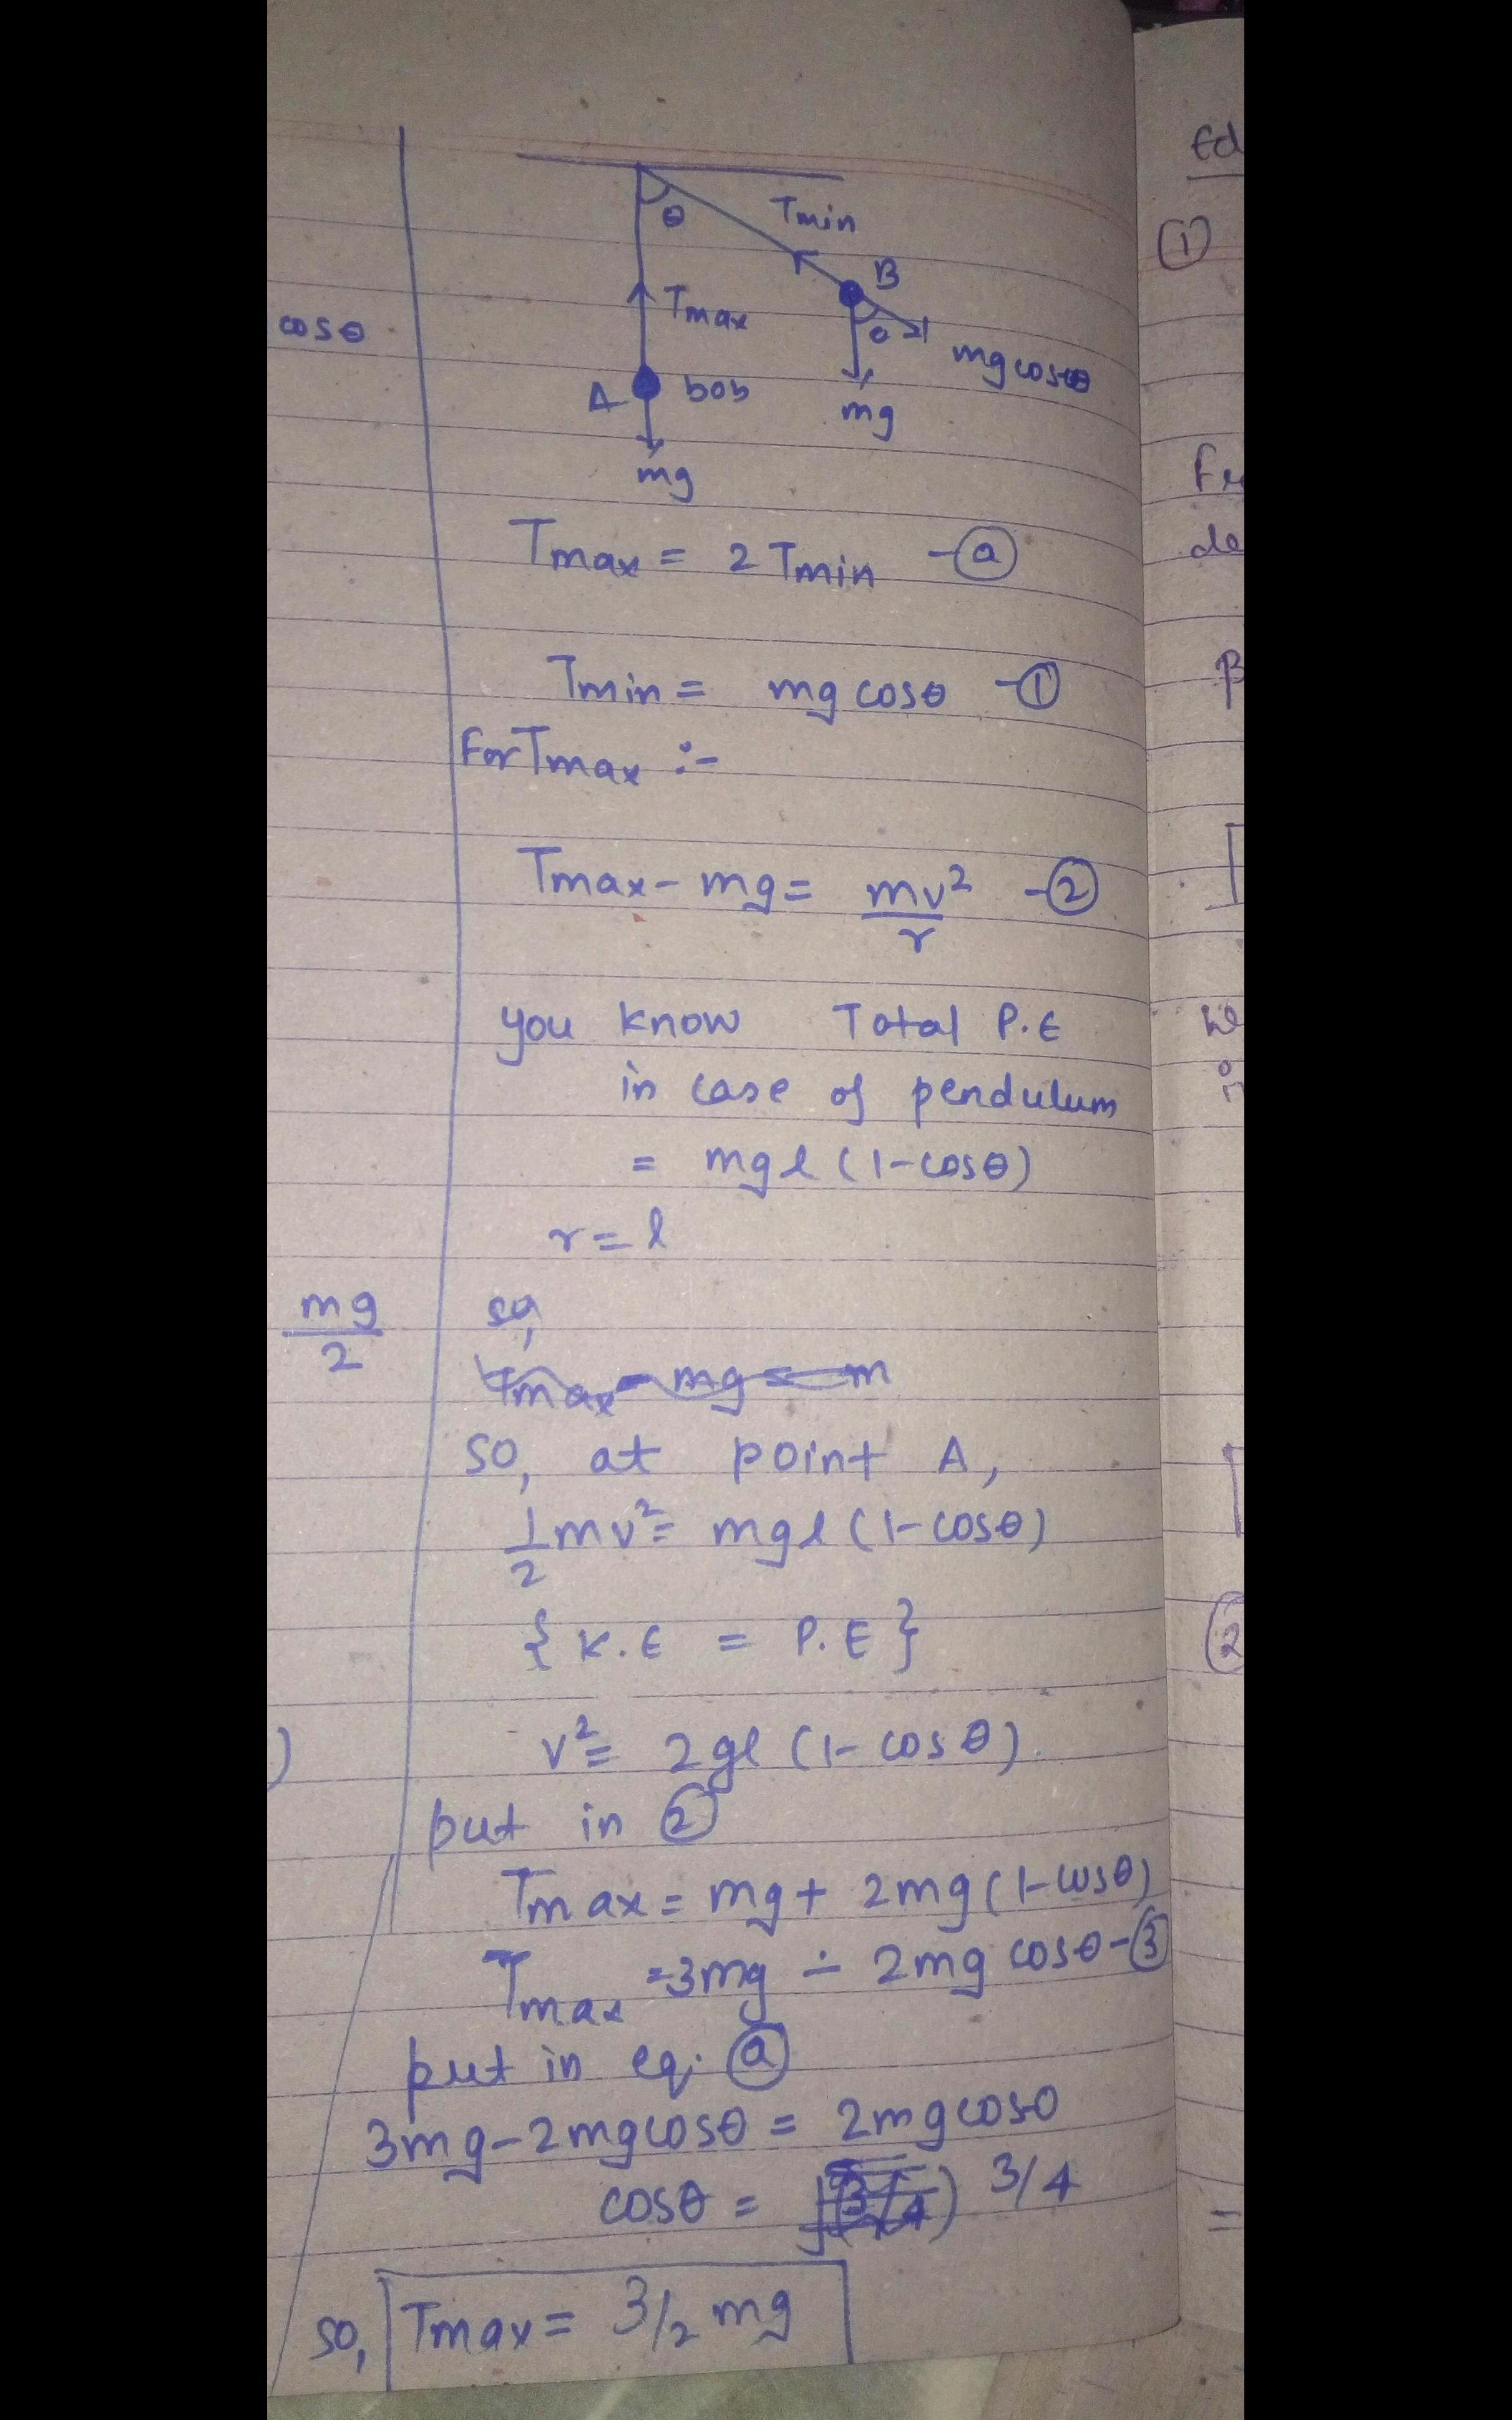 θ
Tmin
B
Tmax
θ
mg cosθ
A
bob
mg
mg
cosθ
Tmax = 2 Tmin -ⓐ
Tmin = mg cosθ -①
For Tmax :-
Tmax - mg = mv²/r -②
you know Total P.E
in case of pendulum
= mgl (1-cosθ)
r = l
mg/2
so,
so, at point A,
1/2 mv² = mgl (1-cosθ)
{ K.E = P.E }
)
v² = 2gl (1-cosθ).
put in ②
Tmax = mg + 2mg (1-cosθ)
Tmax = 3mg - 2mg cosθ -③
put in eq. ⓐ
3mg - 2mgcosθ = 2mgcosθ
cosθ = 3/4
so, Tmax = 3/2 mg
Ed
①
de
②
=